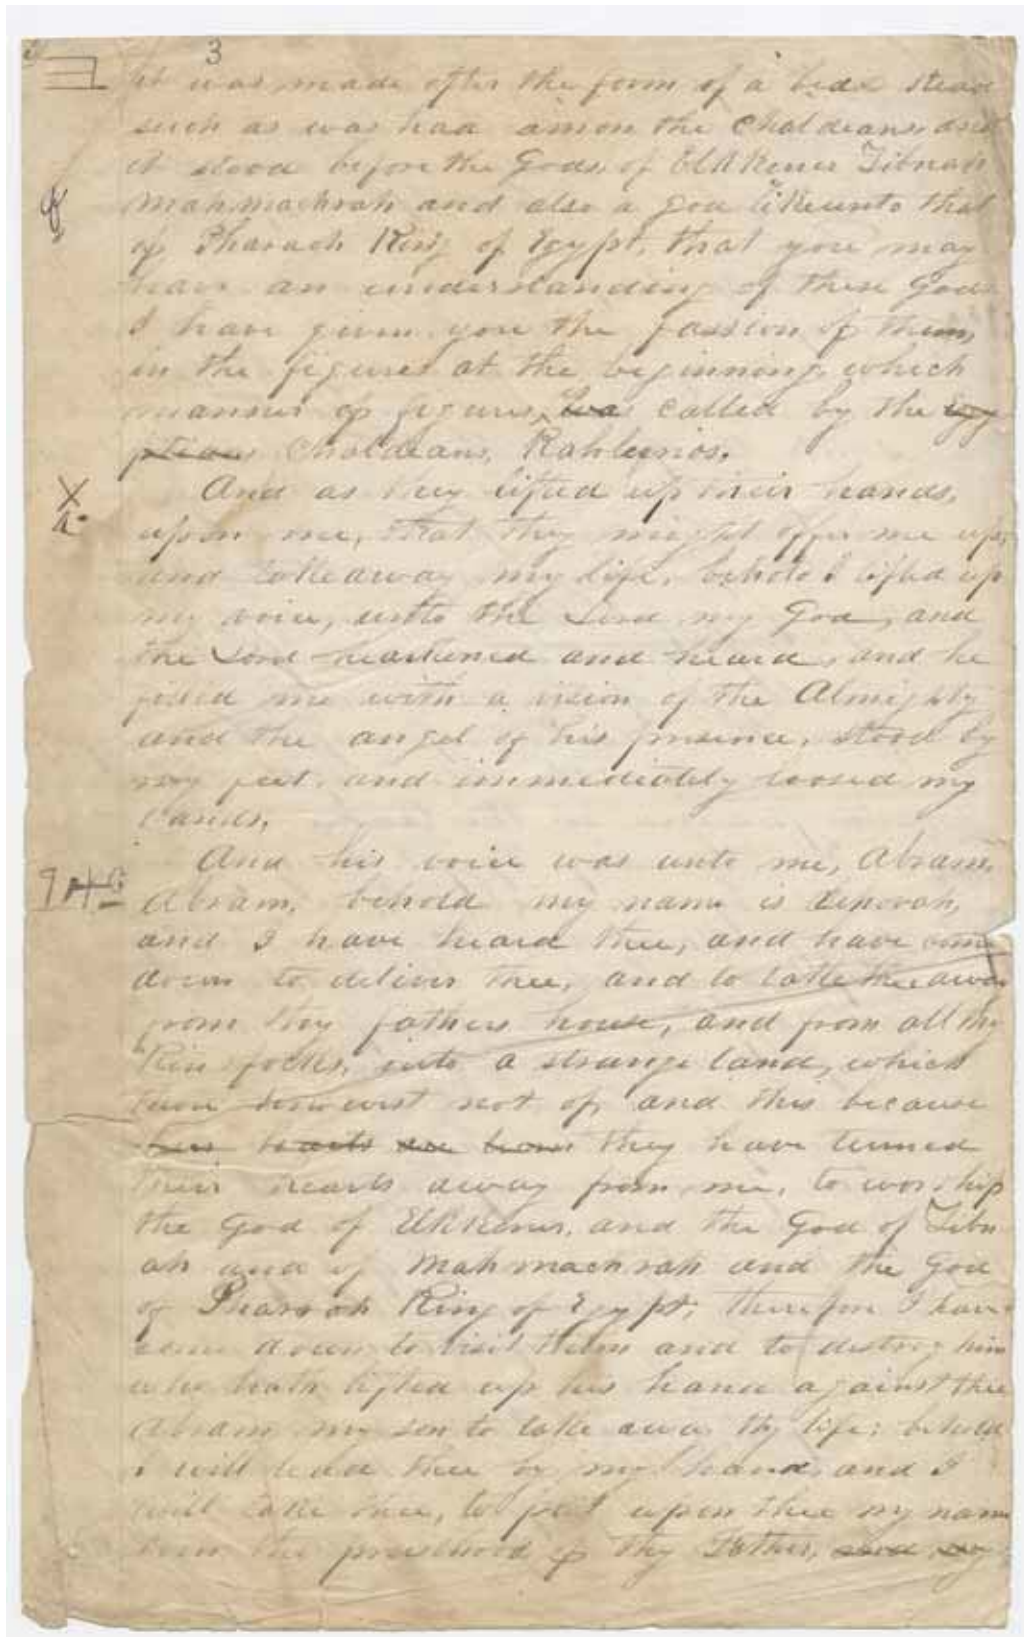 3
it was made after the form of a bedd stead
such as was had amon the Chaldeans and
it stood before the Gods, of Elkkener Zibnah
Mahmachrah and also a god likeunto that
of Pharaoh King of Egypt, that you may
have an understanding of these Gods
I have given you the fassion of them,
in the figures at the beginning which
manner of figures, was called by the egy
ptians Chaldeans, Kahleenos.
And as they lifted up their hands,
upon me, that they might offer me up,
and take away my life, behold I lifted up
my voice, unto the Lord my God, and
the Lord hearkened and heard, and he
filled me with a vision of the Almighty
and the angel of his presence, stood by
my feet, and immediately loosed my
bands,
And his voice was unto me, Abram,
Abram, behold my name is Jehovah,
and I have heard thee, and have come
down to deliver thee, and to take thee away
from thy fathers house, and from all thy
kin folks, into a strange land, which
thou knowest not of, and this because
hearts they have turned
their hearts away from me, to worship
the God of Elkkener, and the God of Zibn
ah and of Mahmachrah and the God
of Pharaoh King of Egypt; therefore I have
come down to visit them and to destroy him
who hath lifted up his hand against thee
Abram my son to take away thy life; behold
I will lead thee by my hand, and I
will take thee, to put upon thee my name
even the priesthood of thy Father, and my